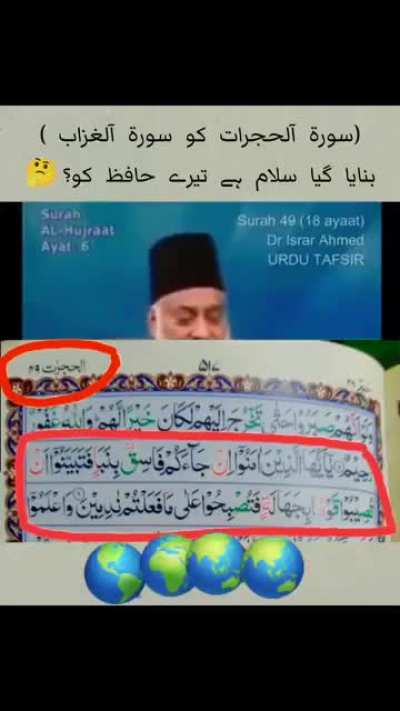 (سورة آلحجرات کو سورة آلغزاب )
بنایا گیا سلام ہے تیرے حافظ کو؟ 🤔
Surah
AL-Hujraat
Ayat 6
Surah 49 (18 ayaat)
Dr Israr Ahmed
URDU TAFSIR
الحجرٰت ۴۹
۵۱۷
وَلَوْ اَنَّهُمْ صَبَرُوْا حَتّٰى تَخْرُجَ اِلَيْهِمْ لَكَانَ خَيْرًا لَّهُمْ وَاللّٰهُ غَفُوْرٌ
رَّحِيْمٌ يٰۤاَيُّهَا الَّذِيْنَ اٰمَنُوْۤا اِنْ جَآءَكُمْ فَاسِقٌۢ بِنَبَاٍ فَتَبَيَّنُوْۤا اَنْ
تُصِيْبُوْا قَوْمًۢا بِجَهَالَةٍ فَتُصْبِحُوْا عَلٰى مَا فَعَلْتُمْ نٰدِمِيْنَ وَاعْلَمُوْۤا